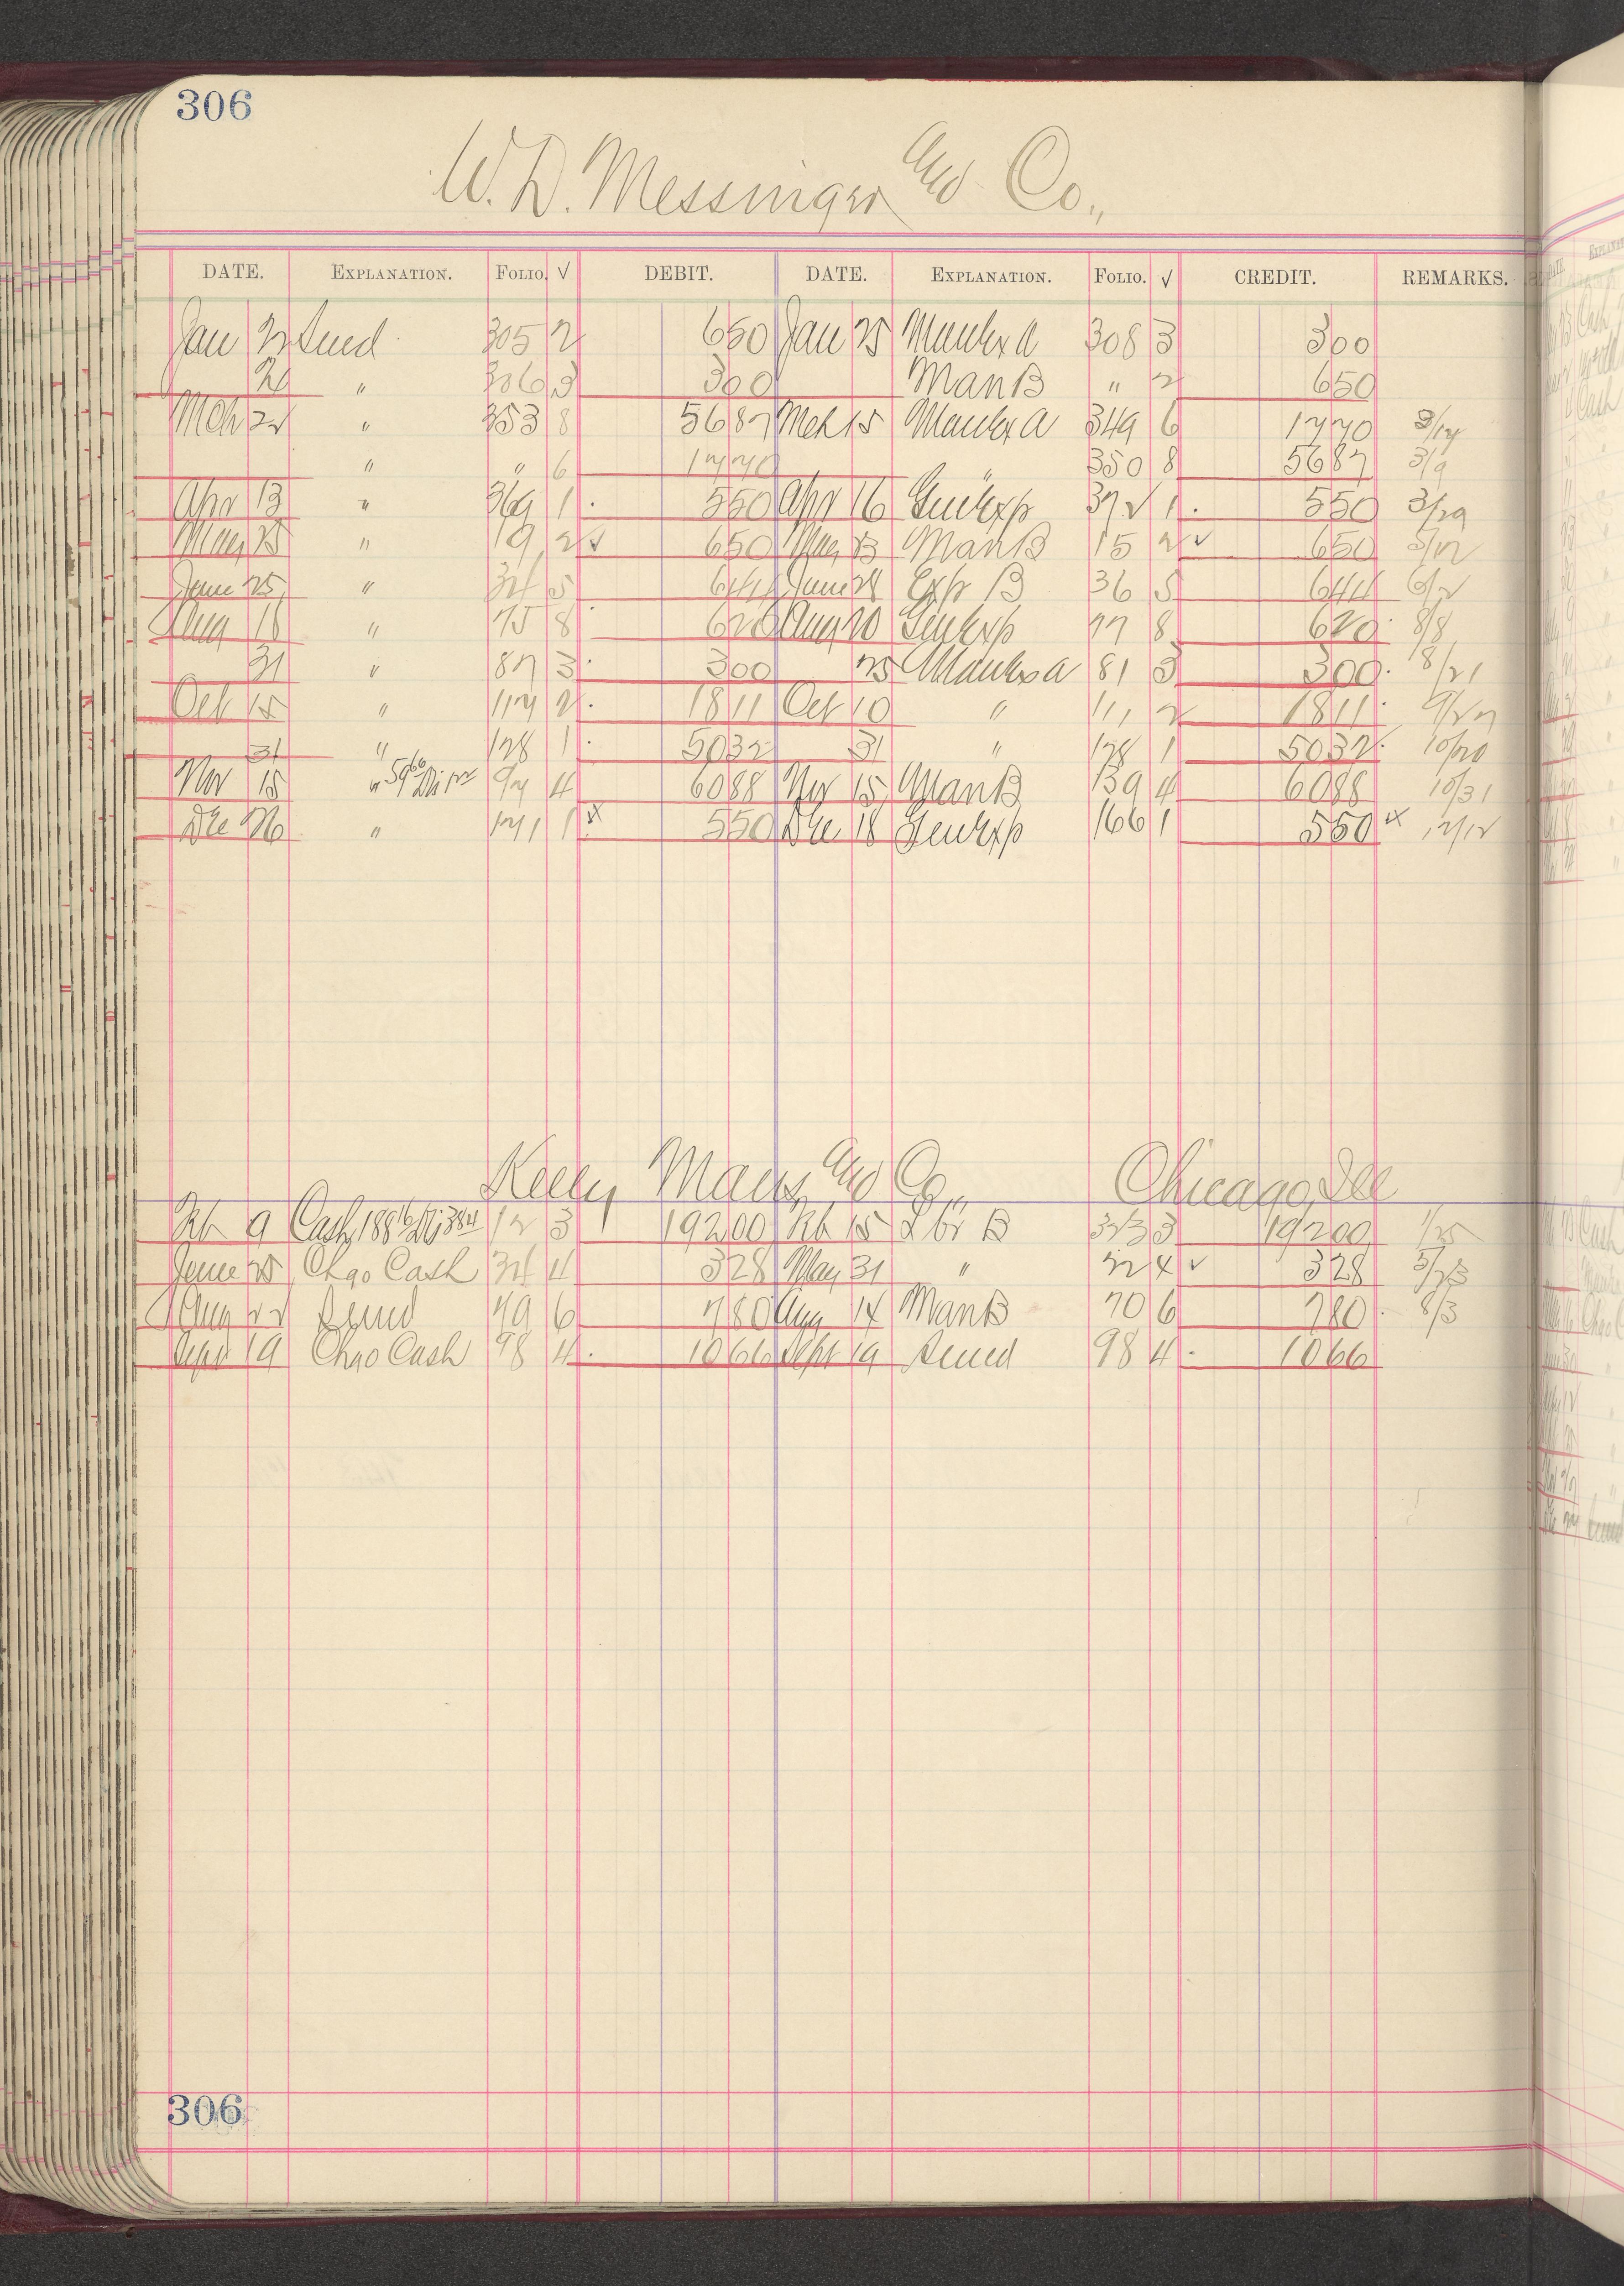 306
W. D. Messinger and Co.,
DATE. EXPLANATION. FOLIO. √ DEBIT. DATE. EXPLANATION. FOLIO. √ CREDIT. REMARKS.
Jan 2 Sund 305 2 650 Jan 25 ManExA 308 3 300
" 306 3 300 ManB " 2 650
Mch 22 " 353 8 5687 Mch 15 ManExA 349 6 1770 3/14
" " 6 1770 " 350 8 5687 3/9
Apr 13 " 369 1 550 Apr 16 GenExp 372 1 550 3/29
May 25 " 19 2 ✓ 650 May 13 ManB 15 2 ✓ 650 5/12
June 25 " 34 5 644 June 28 Exp B 36 5 644 6/2
Aug 18 " 75 8 620 Aug 20 GenExp 77 8 620 8/8
31 " 87 3 300 25 ManExA 81 3 300 8/21
Oct 15 " 117 2 1811 Oct 10 " 111 2 1811 9/27
31 " 128 1 5032 31 " 128 1 5032 10/20
Nov 15 " 4 6088 Nov 15 ManB 139 4 6088 10/31
Dec 26 " 171 1 x 550 Dec 18 GenExp 166 1 550 x 12/12
Kelly Maus and Co., Chicago, Ill
Feb 9 Cash 12 3 19200 Feb 15 B 323 3 19200 1/25
June 25 Chgo Cash 34 4 328 May 31 " 22 4 ✓ 328 5/23
Aug 22 Sund 79 6 780 Aug 14 ManB 70 6 780 8/3
Sept 19 Chgo Cash 98 4 1066 Sept 19 Sund 98 4 1066
306